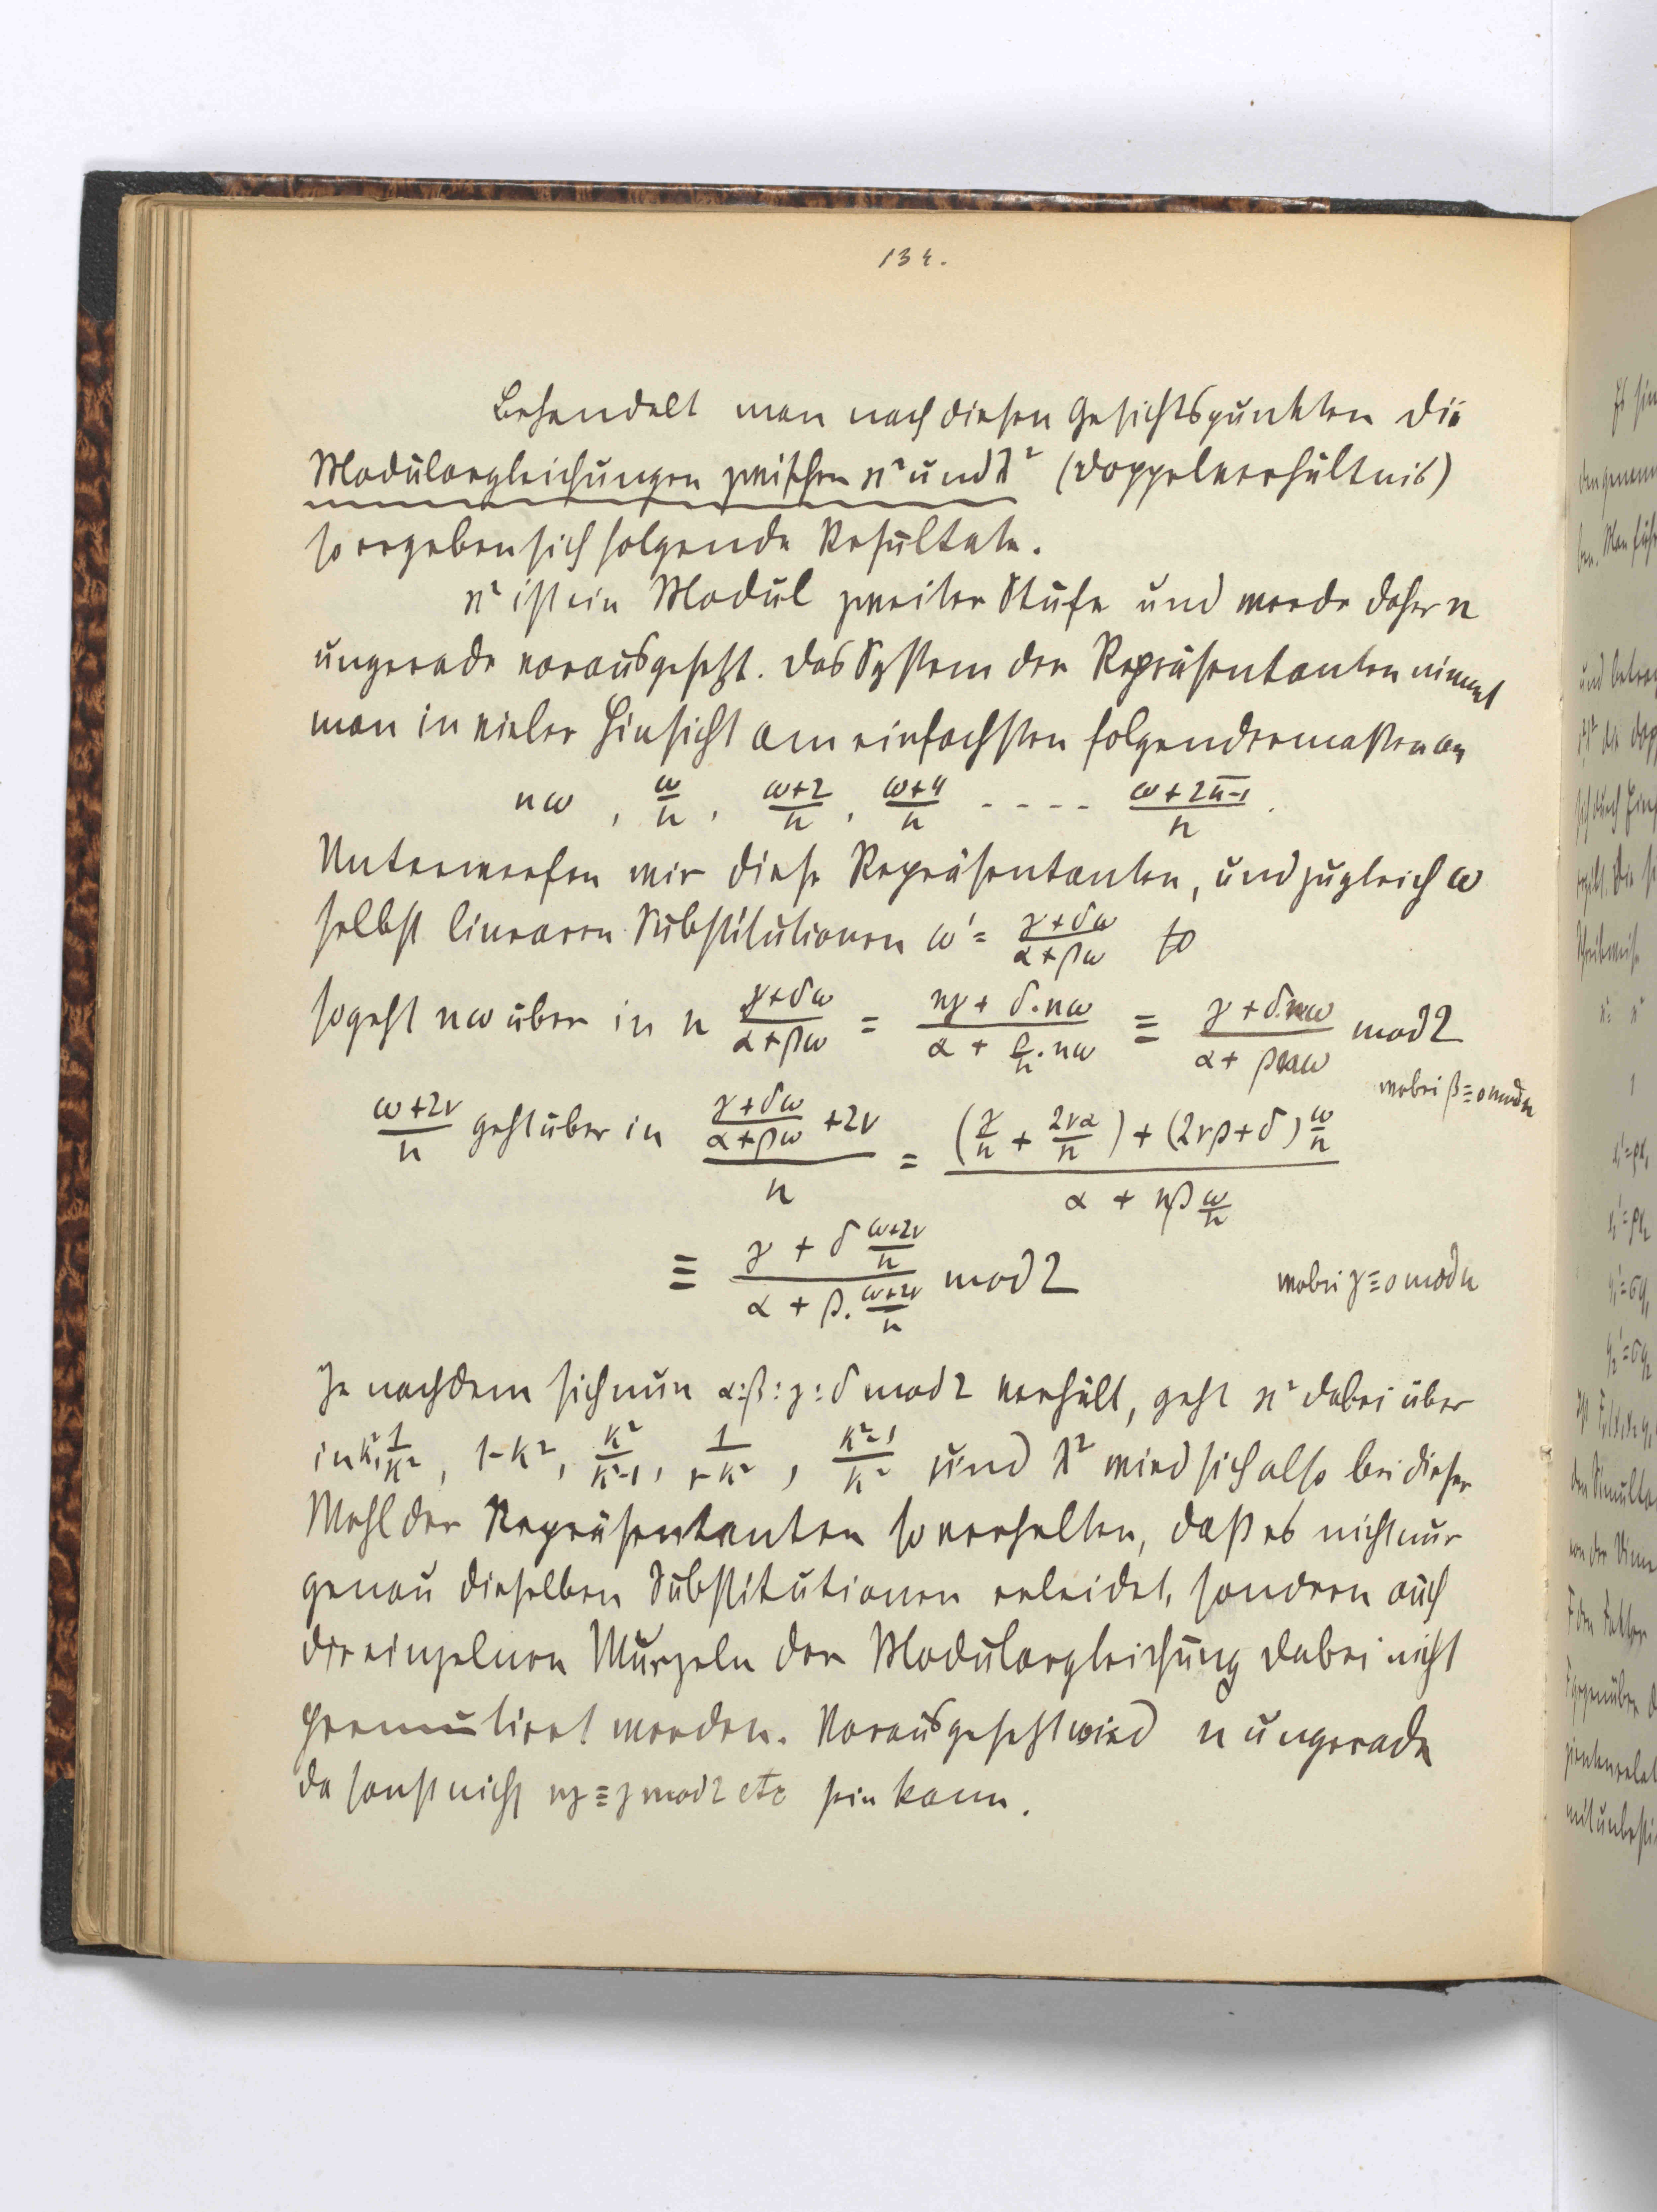 134.
Behandelt man nach diesen Gesichtspunkten die
Modulargleichungen zwischen ϰ² und λ² (Doppelverhältnis)
so ergeben sich folgende Resultate.
ϰ² ist ein Modul zweiter Stufe und werde daher n
ungerade vorausgesetzt. Das System der Repräsentanten nimmt
man in vieler Hinsicht am einfachsten folgendermaßen an
nω , ω/n , (ω+2)/n , (ω+4)/n - - - - (ω+2(n-1))/n .
Unterwerfen wir diese Repräsentanten, und zugleich ω
selbst linearen Substitutionen ω' = (γ+δω)/(α+βω) so
so geht nω über in n (γ+δω)/(α+βω) = (nγ + δ.nω)/(α + β/n.nω) ≡ (γ + δ.nω)/(α + βnω) mod 2
wobei β≡0 mod n
(ω+2ν)/n geht über in ((γ+δω)/(α+βω) + 2ν)/n = ((γ/n + 2να/n) + (2νβ+δ) ω/n)/(α + nβ ω/n)
≡ (γ + δ (ω+2ν)/n)/(α + β. (ω+2ν)/n) mod 2 wobei γ≡0 mod n
Je nachdem sich nun α:β:γ:δ mod 2 verhält, geht ϰ² dabei über
in k², 1/k², 1-k², k²/(k²-1), 1/(1-k²), (k²-1)/k² und λ² wird sich also bei dieser
Wahl der Repräsentanten so verhalten, daß es nicht nur
genau dieselben Substitutionen erleidet, sondern auch
die einzelnen Wurzeln der Modulargleichung dabei nicht
permutirt werden. Vorausgesetzt wird n ungerade
da sonst nicht nγ ≡ γ mod 2 etc sein kann.